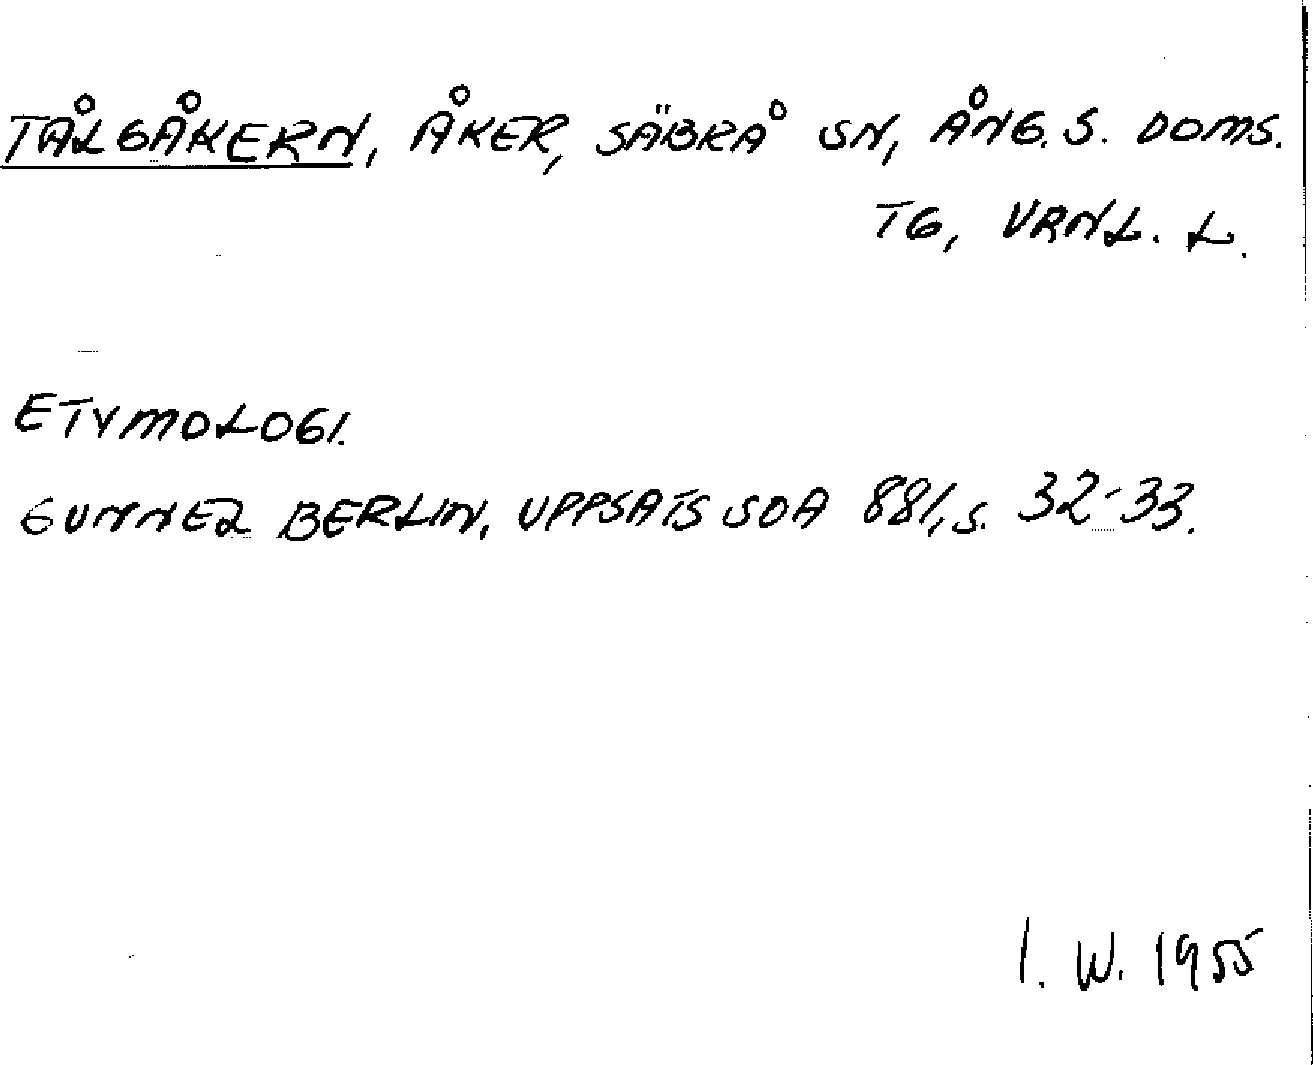 TÅLGÅKERN, ÅKER, SÄBRÅ SN, ÅNG. S. DOMS.
TG, VRNL. L.
ETYMOLOGI.
GUNNEL BERLIN, UPPSATS SOA 881, S. 32-33.
I. W. 1955